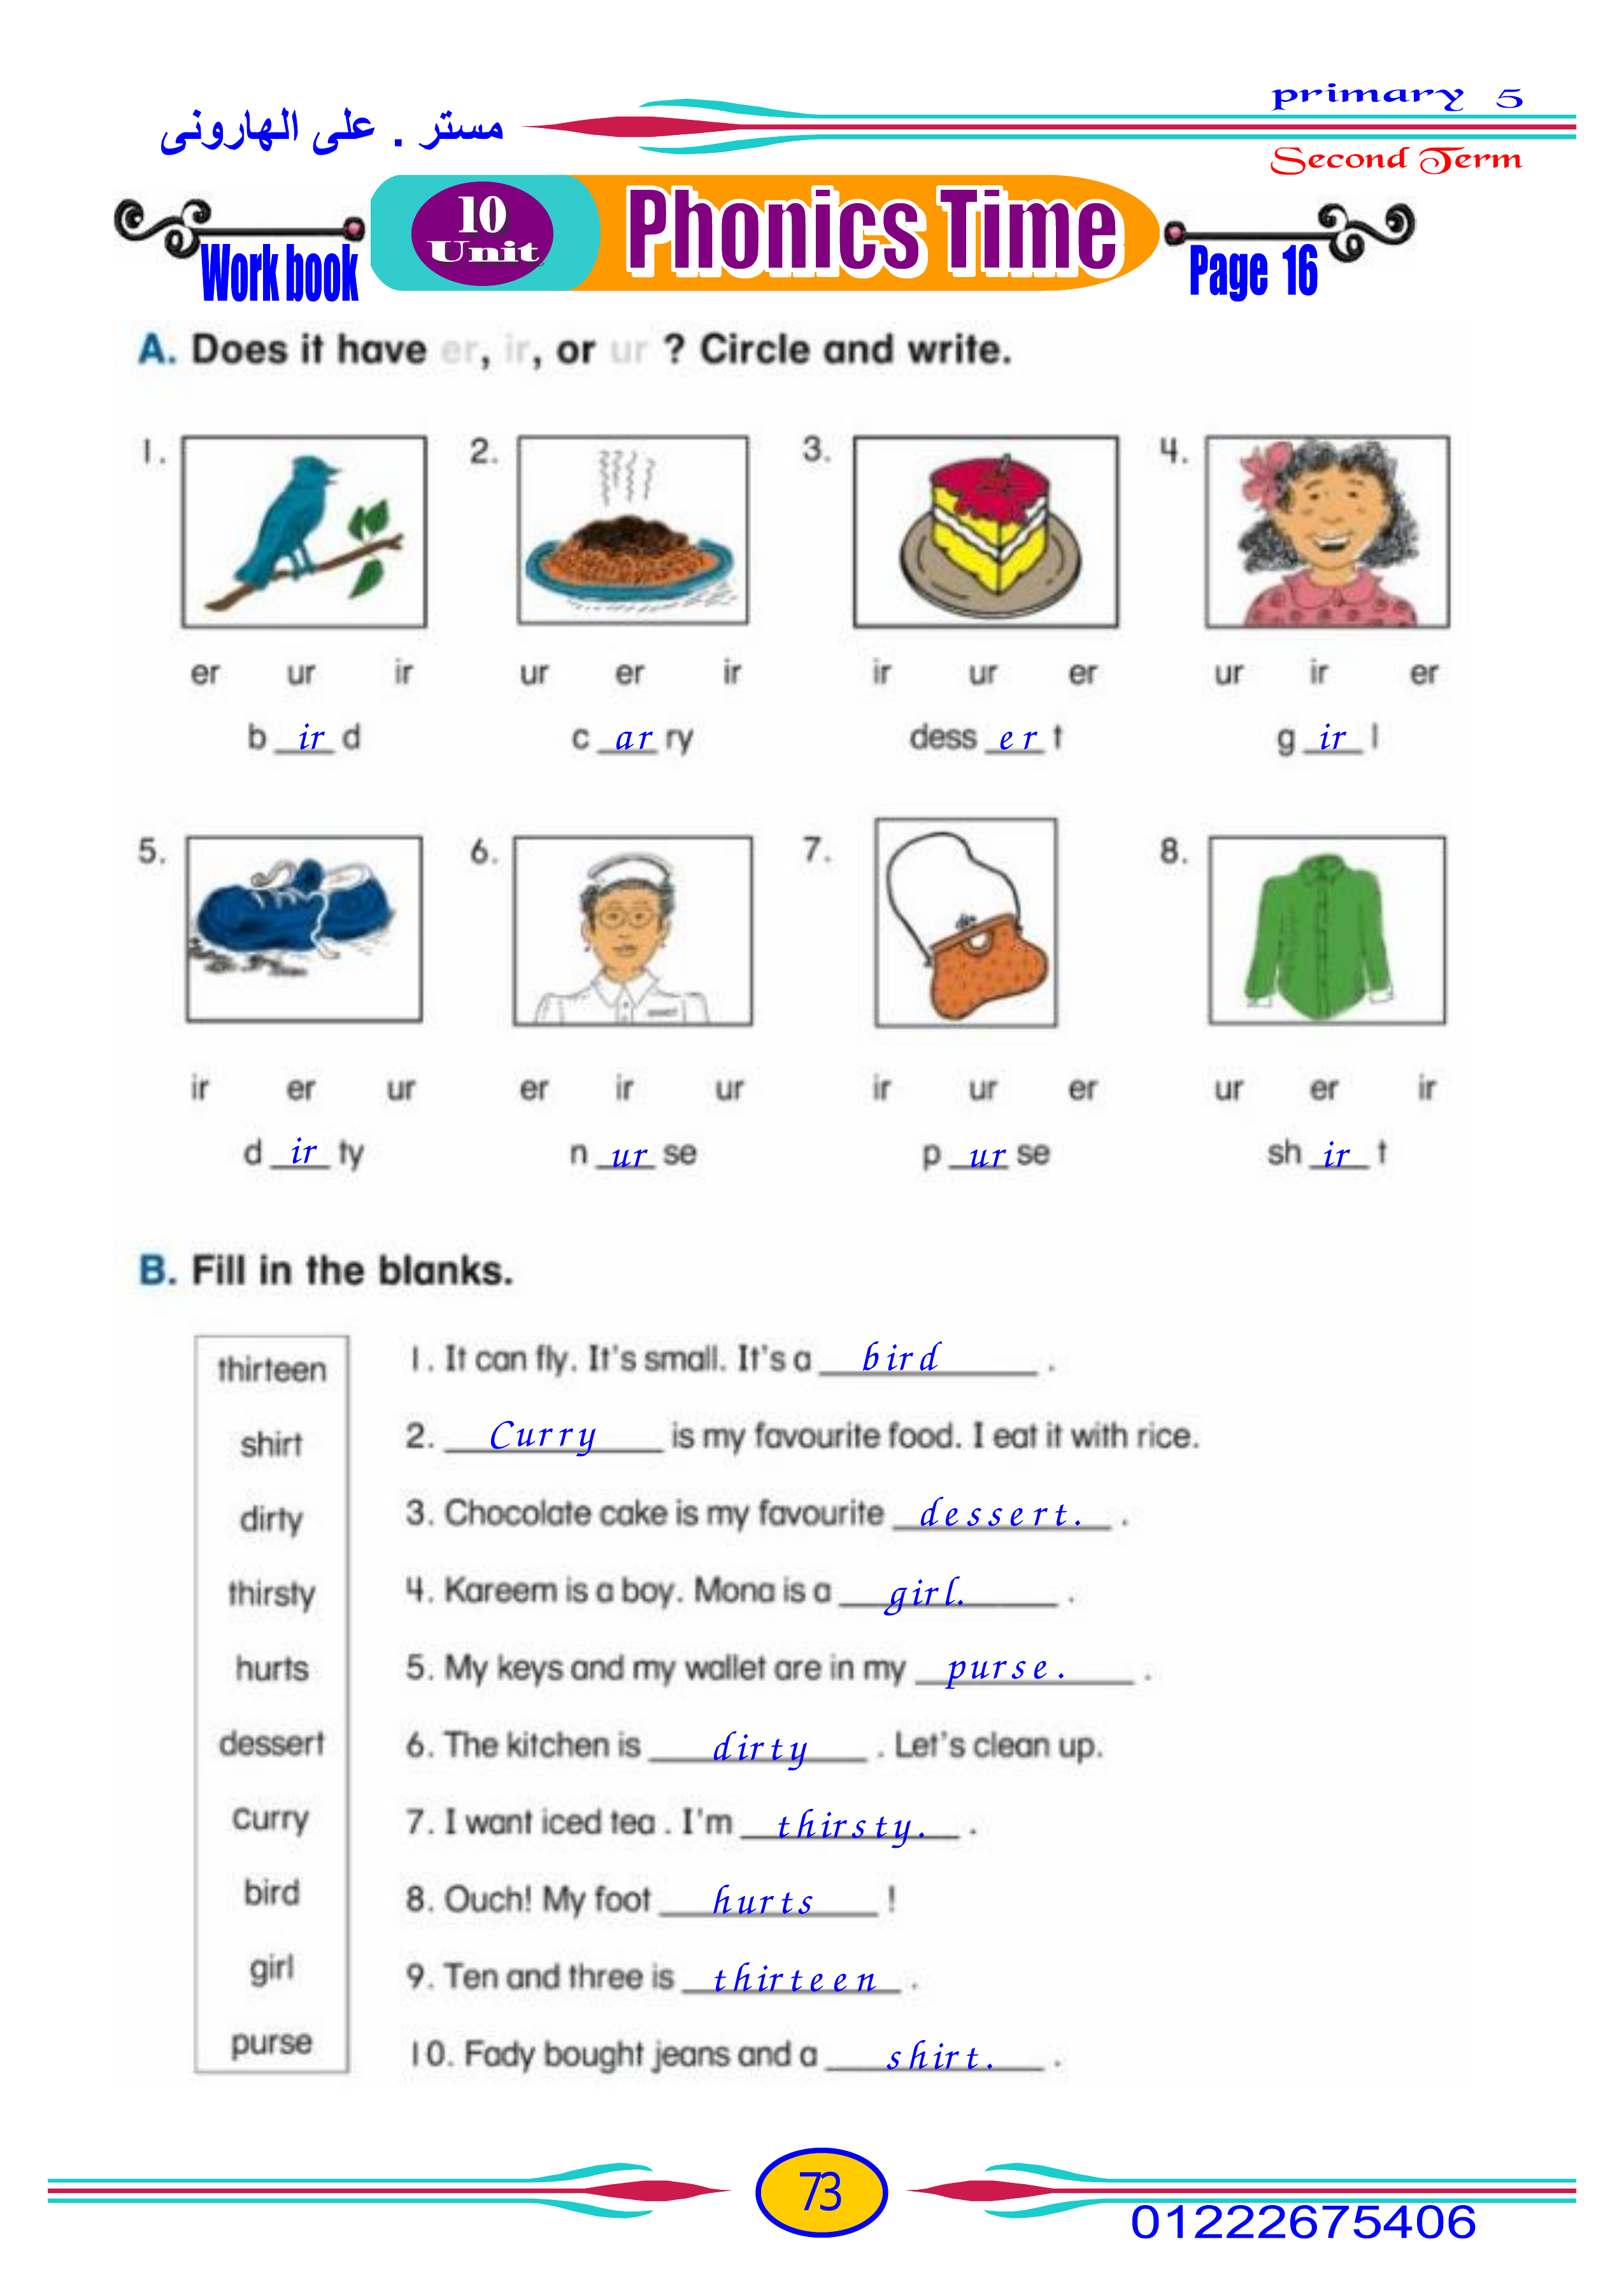 primary 5
مستر . على الهارونى
Second Term
10
Unit
Phonics Time
Work book
Page 16
A. Does it have er, ir, or ur ? Circle and write.
1. 2. 3. 4.
er ur ir ur er ir ir ur er ur ir er
b ir d c ar ry dess er t g ir l
5. 6. 7. 8.
ir er ur er ir ur ir ur er ur er ir
d ir ty n ur se p ur se sh ir t
B. Fill in the blanks.
thirteen
shirt
dirty
thirsty
hurts
dessert
curry
bird
girl
purse
1. It can fly. It's small. It's a bird .
2. Curry is my favourite food. I eat it with rice.
3. Chocolate cake is my favourite dessert. .
4. Kareem is a boy. Mona is a girl. .
5. My keys and my wallet are in my purse. .
6. The kitchen is dirty . Let's clean up.
7. I want iced tea . I'm thirsty. .
8. Ouch! My foot hurts !
9. Ten and three is thirteen .
10. Fady bought jeans and a shirt. .
73
01222675406